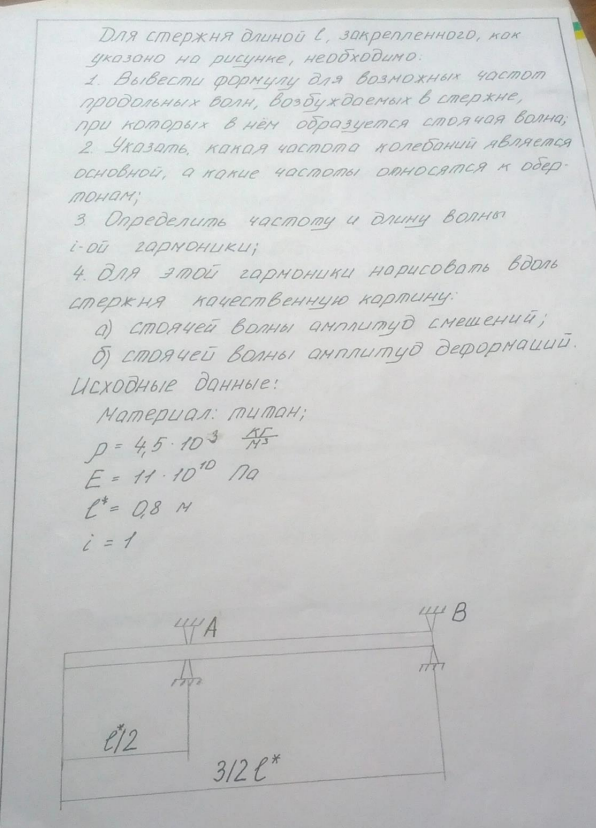 Для стержня длиной ℓ, закрепленного, как
указано на рисунке, необходимо:
1. Вывести формулу для возможных частот
продольных волн, возбуждаемых в стержне,
при которых в нём образуется стоячая волна;
2. Указать, какая частота колебаний является
основной, а какие частоты относятся к обер-
тонам;
3. Определить частоту и длину волны
i-ой гармоники;
4. Для этой гармоники нарисовать вдоль
стержня качественную картину:
а) стоячей волны амплитуд смешений;
б) стоячей волны амплитуд деформаций.
Исходные данные:
Материал: титан;
ρ = 4,5·10³ кг/м³
E = 11·10¹⁰ Па
ℓ* = 0,8 м
i = 1
A B
ℓ*/2
3/2 ℓ*